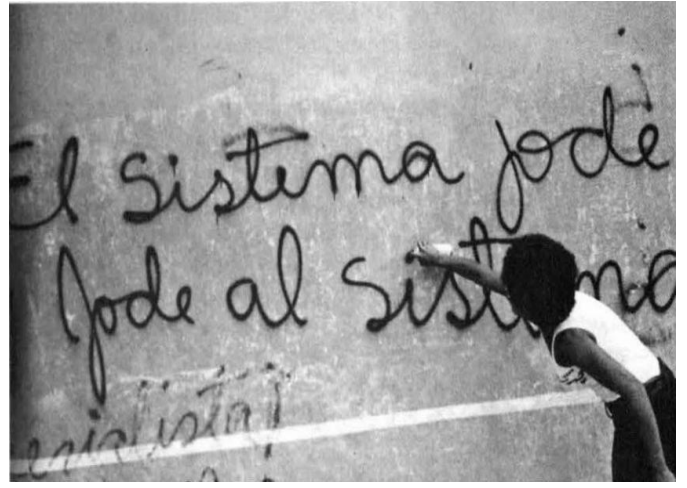 El sistema jode
Jode al sistema